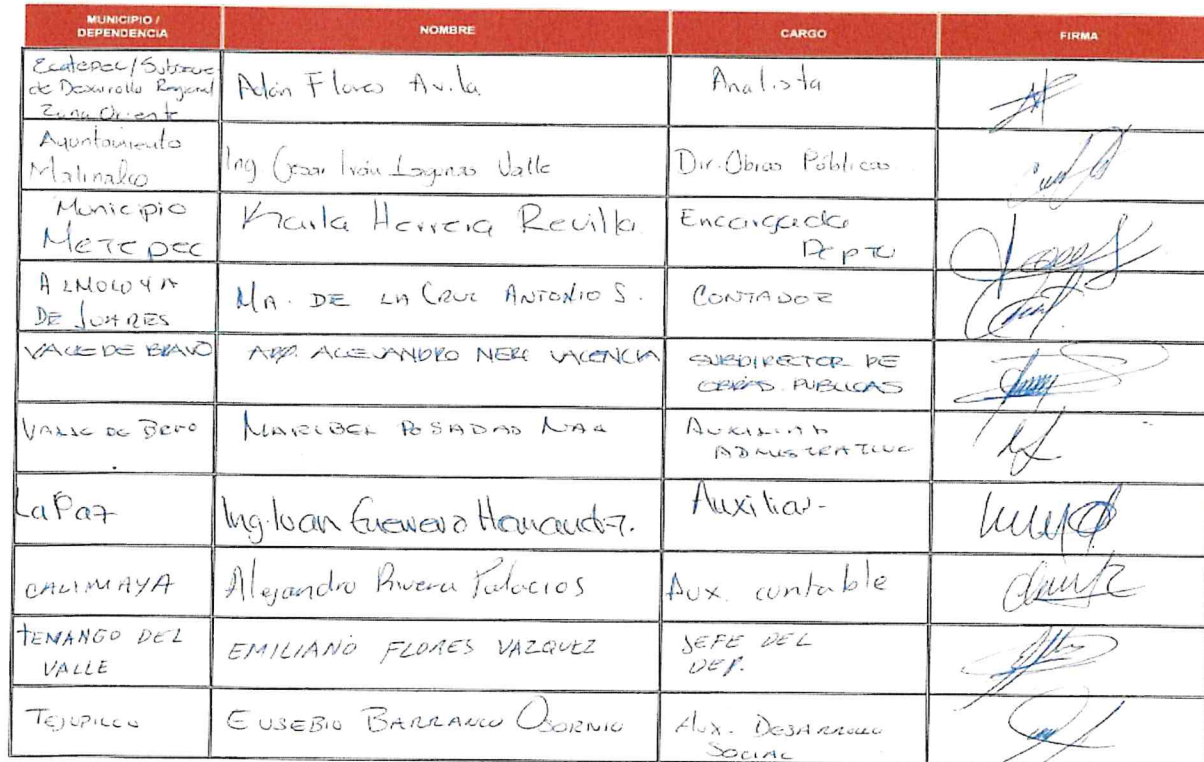 MUNICIPIO /
DEPENDENCIA
NOMBRE
CARGO
FIRMA
Ecatepec/
de Desarrollo Regional
Zona Oriente
Adán Flores Avila
Analista
Ayuntamiento
Malinalco
Ing Cesar Iván Valle
Dir. Obras Públicas
Municipio
Metepec
Karla Herrera Revilla
Encargada
Depto
ALMOLOYA
DE JUARES
MA. DE LA CRUZ ANTONIO S.
CONTADOR
VALLE DE BRAVO
ALEJANDRO NERI VALENCIA
SUBDIRECTOR DE
OBRAS PUBLICAS
VALLE DE BRAVO
MARIBEL POSADAS
AUXILIAR
La Paz
Ing. Ivan Guerrero Hernandez.
Auxiliar
CALIMAYA
Alejandro Rivera Palacios
Aux. contable
TENANGO DEL
VALLE
EMILIANO FLORES VAZQUEZ
JEFE DEL
DEP.
TEJUPILCO
EUSEBIO BARRANCO OSORNIO
AUX. DESARROLLO
SOCIAL